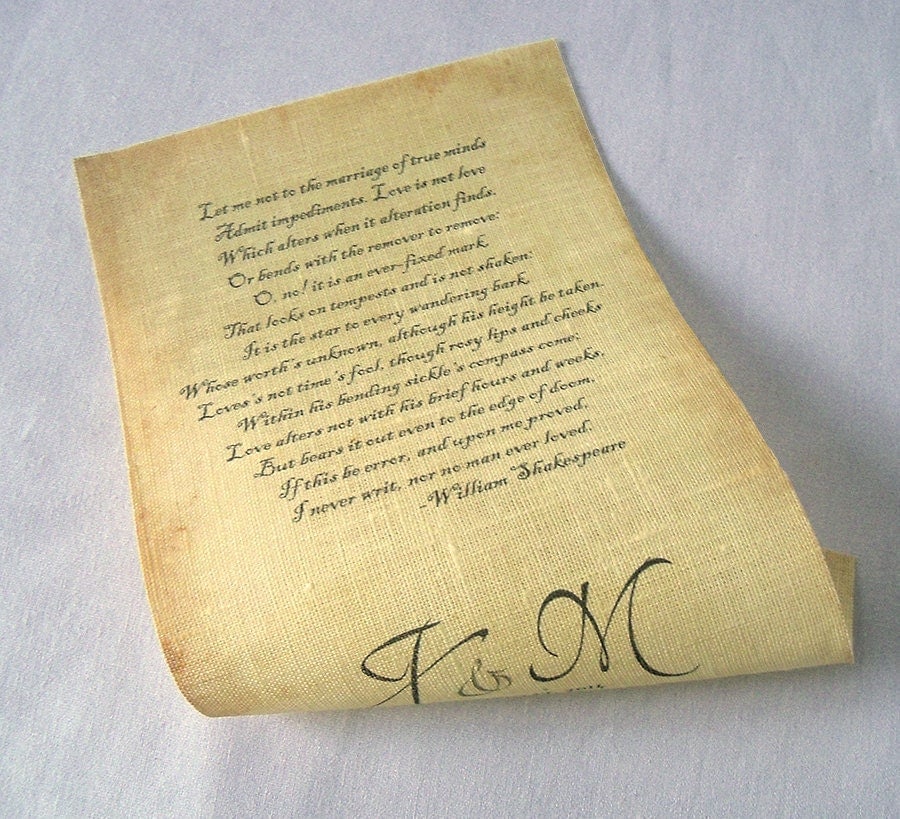 Let me not to the marriage of true minds
Admit impediments. Love is not love
Which alters when it alteration finds.
Or bends with the remover to remove:
O, no! it is an ever-fixed mark,
That looks on tempests and is not shaken:
It is the star to every wandering bark,
Whose worth's unknown, although his height be taken.
Loves's not time's fool, though rosy lips and cheeks
Within his bending sickle's compass come;
Love alters not with his brief hours and weeks,
But bears it out even to the edge of doom,
If this be error, and upon me proved,
I never writ, nor no man ever loved.
-William Shakespeare
& M